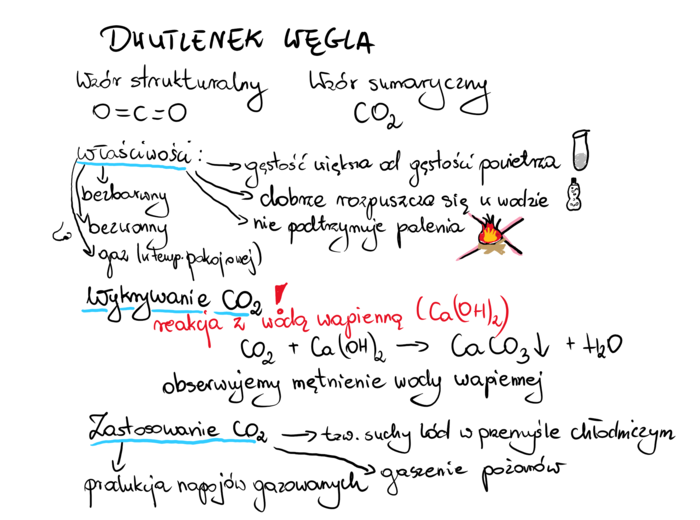 DWUTLENEK WĘGLA
Wzór strukturalny
Wzór sumaryczny
O=C=O
CO₂
właściwości:
→ gęstość większa od gęstości powietrza
bezbarwny
→ dobrze rozpuszcza się w wodzie
bezwonny
→ nie podtrzymuje palenia
gaz (w temp. pokojowej)
Wykrywanie CO₂ !
reakcja z wodą wapienną (Ca(OH)₂)
CO₂ + Ca(OH)₂ → CaCO₃↓ + H₂O
obserwujemy mętnienie wody wapiennej
Zastosowanie CO₂ → tzw. suchy lód w przemyśle chłodniczym
gaszenie pożarów
produkcja napojów gazowanych